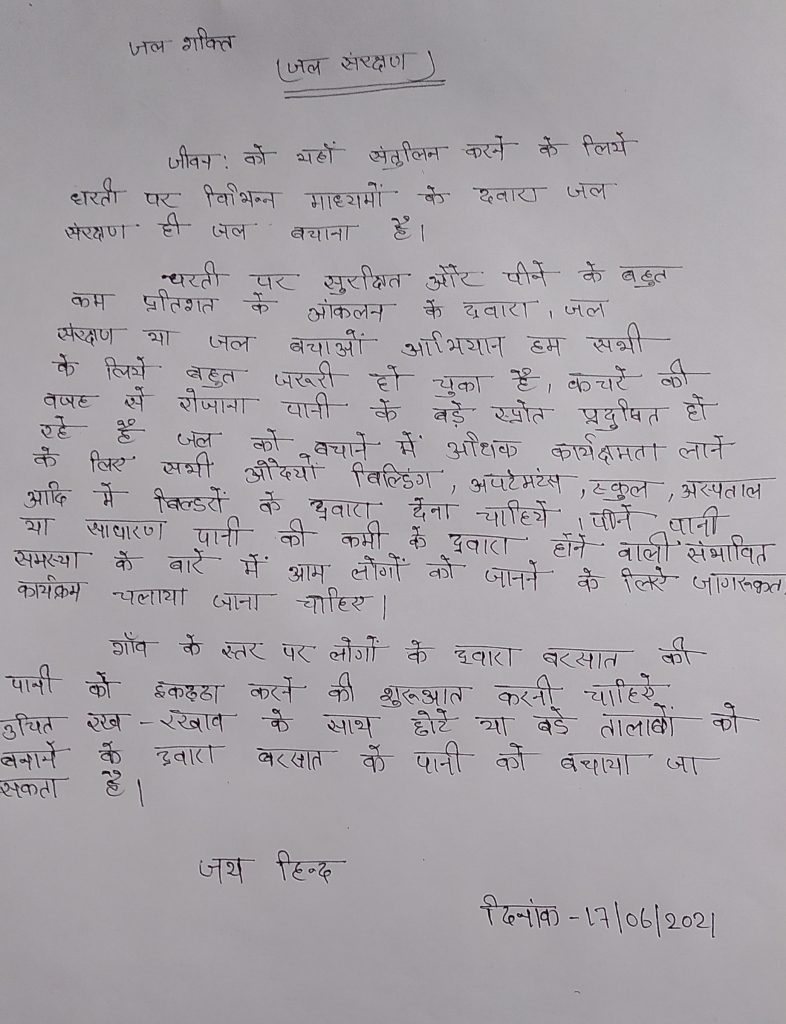 जल शक्ति
(जल संरक्षण)
जीवन: को यहाँ संतुलिन करने के लिये
धरती पर विभिन्न माध्यमों के दवारा जल
संरक्षण ही जल बचाना है।
धरती पर सुरक्षित और पीने के बहुत
कम प्रतिशत के आंकलन के द्रवारा, जल
संरक्षण या जल बचाओं अभियान हम सभी
के लिये बहुत जरूरी हो चुका है, कचरे की
वजह से रोजाना पानी के बड़े स्त्रोत प्रदुषित हो
रहे हैं जल को बचाने में अधिक कार्यक्षमता लाने
के लिए सभी ओदयो बिल्डिंग, अपटेमटंस, स्कुल, अस्पताल
आदि में बिल्डरों के द्रवारा देना चाहिये, पीने पानी
या साधारण पानी की कमी के द्रवारा होने वाली संभावित
समस्या के बारे में आम लोगों को जानने के लिरे जागरूकत
कार्यक्रम चलाया जाना चाहिए।
गाँव के स्तर पर लोगों के दवारा बरसात की
पानी को इकहठा करने की शुरूआत करनी चाहिरे
उचित रख-रखाव के साथ छोटे या बडे तालाबों को
बनाने के दवारा बरसात के पानी को बचाया जा
सकता है।
जय हिन्द
दिनांक -17/06/2021